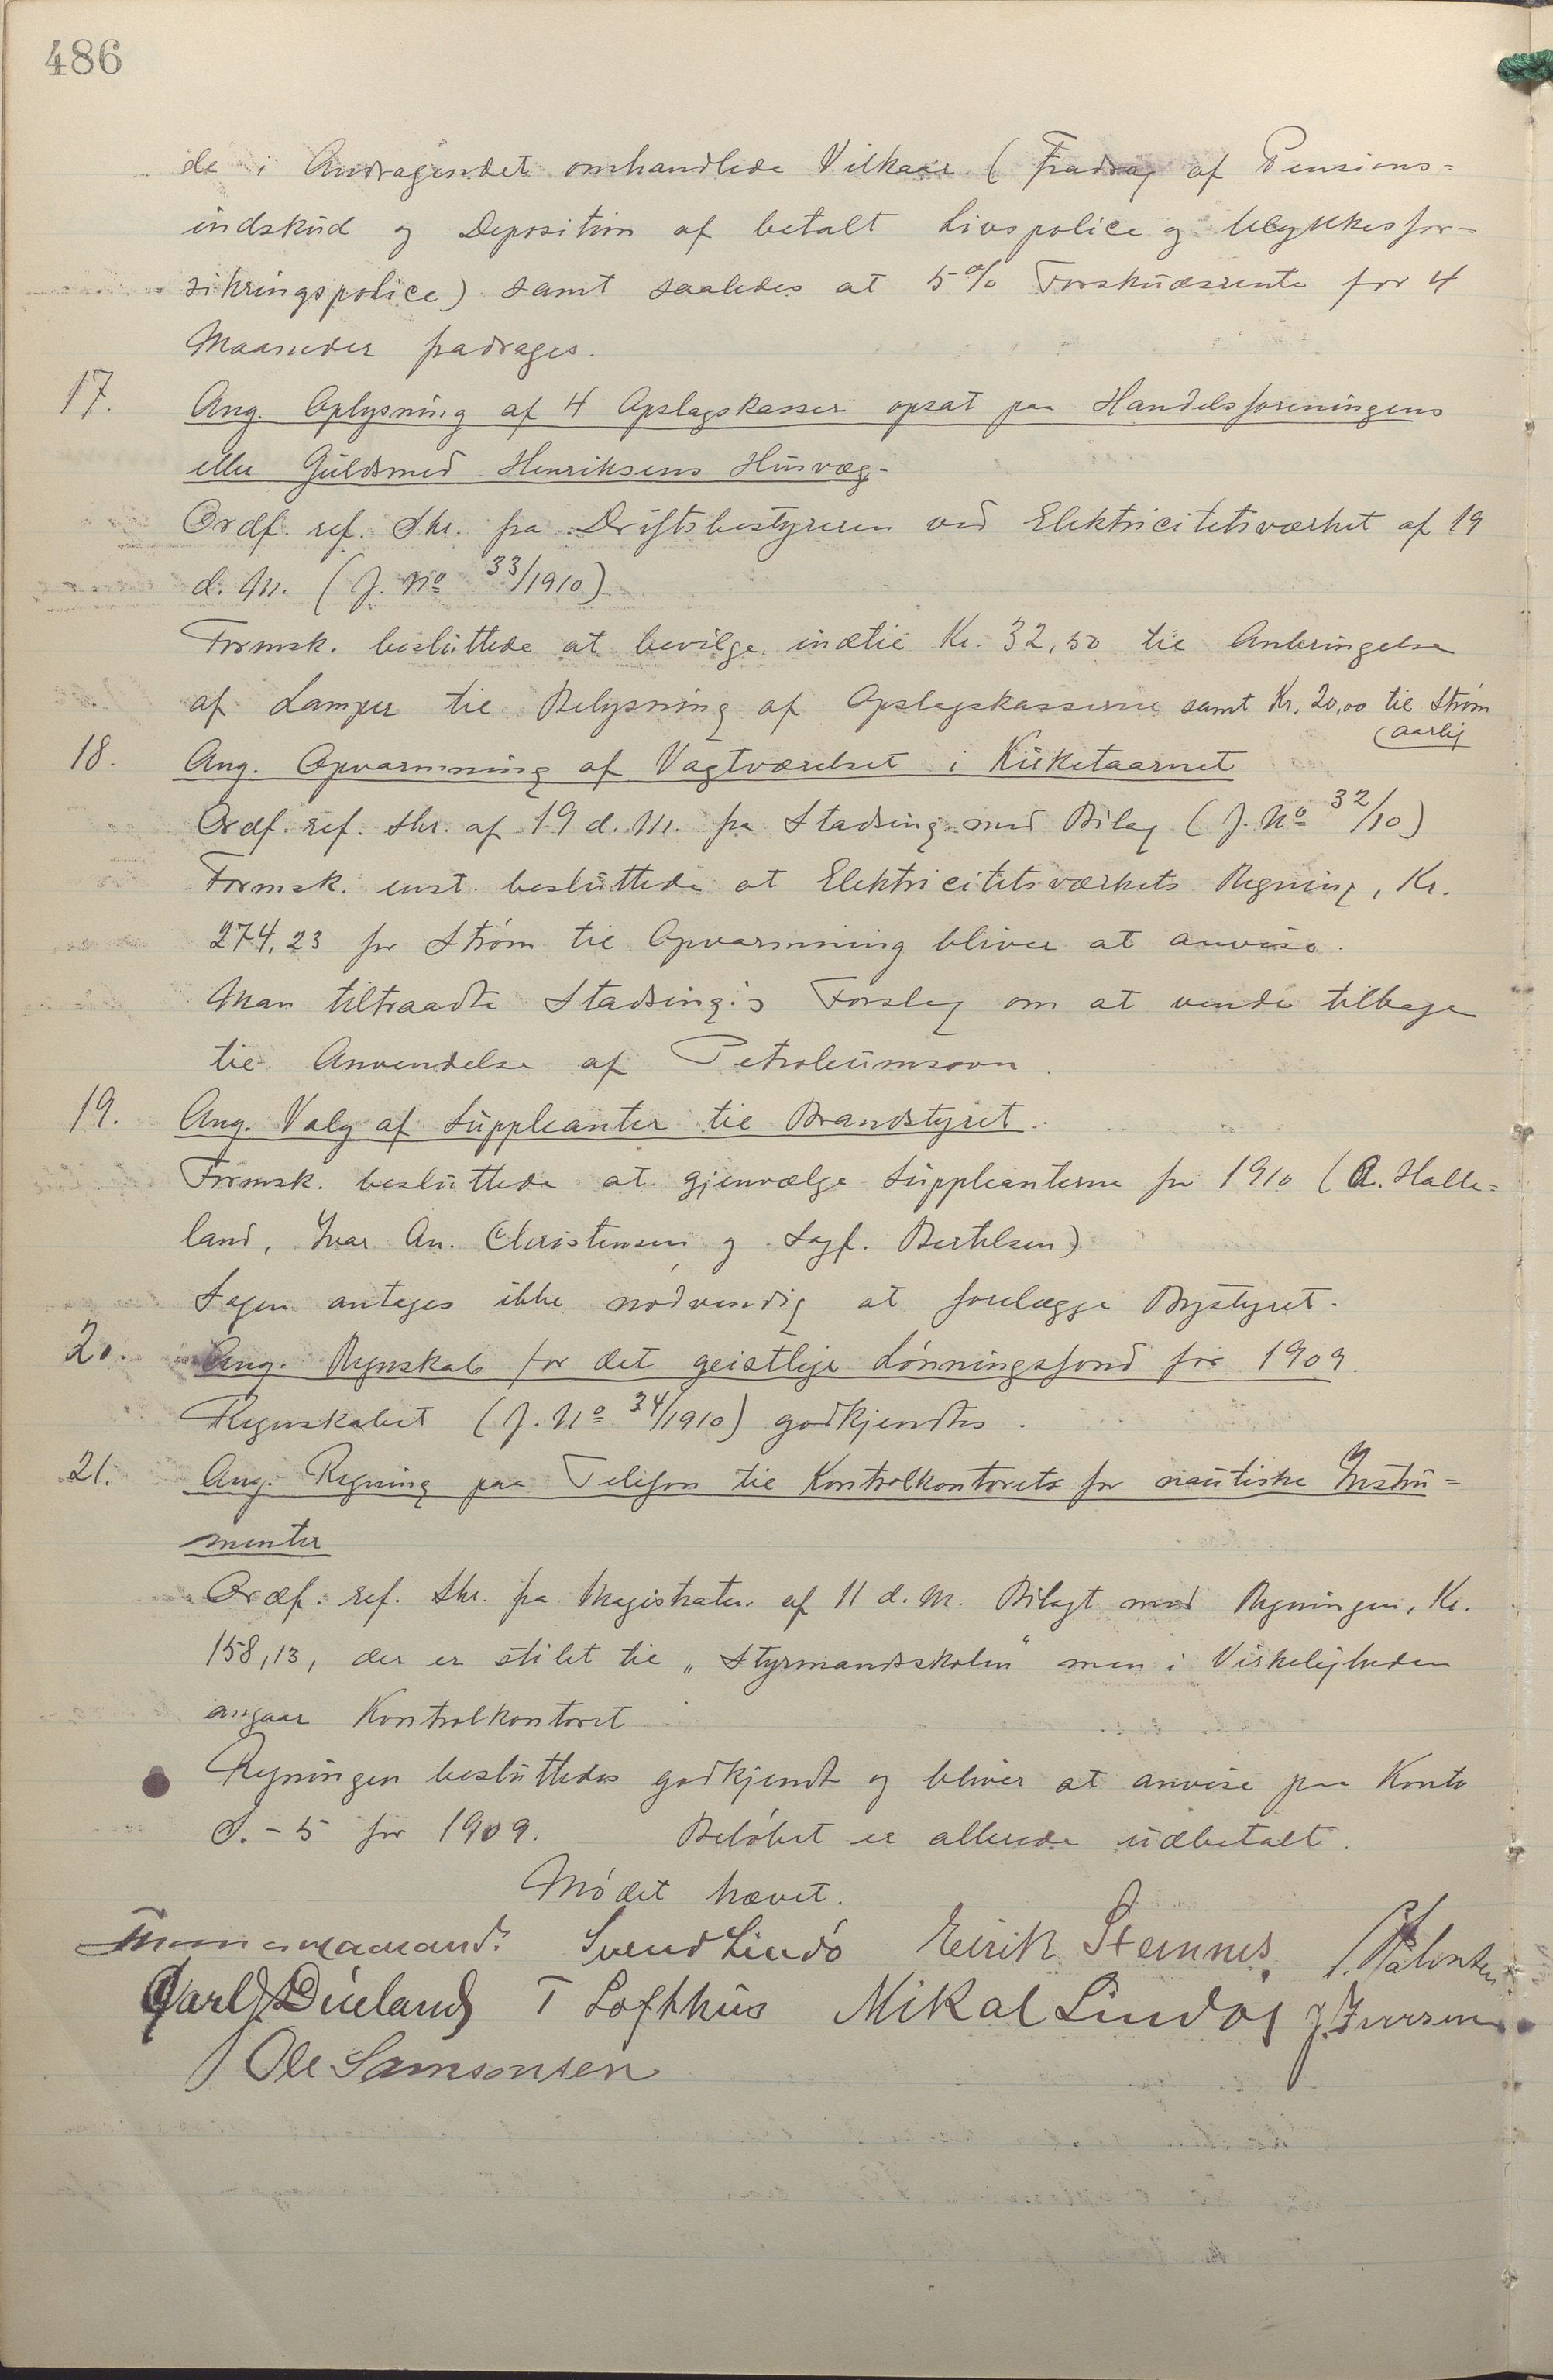 486
de i Andragendet omhandlede Vilkaar (Fradrag af Pensions=
indskud og Deposition af betalt Livspolice og Ulykkesfor=
sikringspolice) samt saaledes at 5% Forskudsrente for 4
Maaneder fradrages.
17. Ang. Oplysning af 4 Opslagskasser opsat paa Handelsforeningens
eller Guldsmed Henriksens Husvæg.
Ordf. ref. Skr. fra Driftsbestyreren ved Elektricitetsværket af 19
d. M. (J. No 33/1910)
Formsk. besluttede at bevilge indtil Kr. 32,50 til Anbringelse
af Lamper til Belysning af Opslagskasserne samt Kr. 20,00 til Strøm
(aarlig
18. Ang. Opvarmning af Vagtværelset i Kirketaarnet
Ordf. ref. skr. af 19 d. M. fra Stadsing. med Bilag (J. No 32/10)
Formsk. enst. besluttede at Elektricitetsværkets Regning, Kr.
274,23 for Strøm til Opvarmning bliver at anvise.
Man tiltraadte Stadsing.'s Forslag om at vende tilbage
til Anvendelse af Petroleumsovn.
19. Ang. Valg af Suppleanter til Brandstyret.
Formsk. besluttede at gjenvælge Suppleanterne for 1910 (A. Halle=
land, Ivar An. Christensen og Sigf. Bertelsen)
Sagen antages ikke nødvendig at forelægge Bystyret.
20. Ang. Regnskab for det geistlige Lønningsfond for 1909.
Regnskabet (J. No 34/1910) godkjendtes.
21. Ang. Regning paa Telefon til Kontrolkontorets for nautiske Instru=
menter
Ordf. ref. Skr. fra Magistraten af 11 d. M. Bilagt med Regningen, Kr.
158,13, der er stilet til „Styrmandsskolen“ men i Virkeligheden
angaar Kontrolkontoret
Regningen besluttedes godkjendt og bliver at anvise paa Konto
S. - 5 for 1909. Beløbet er allerede udbetalt.
Mødet hævet.
Svend Lindø Eirik Stennes
Carl J. Dueland T Lofthus Mikal Lindøe J. Iversen
Ole Samsonsen